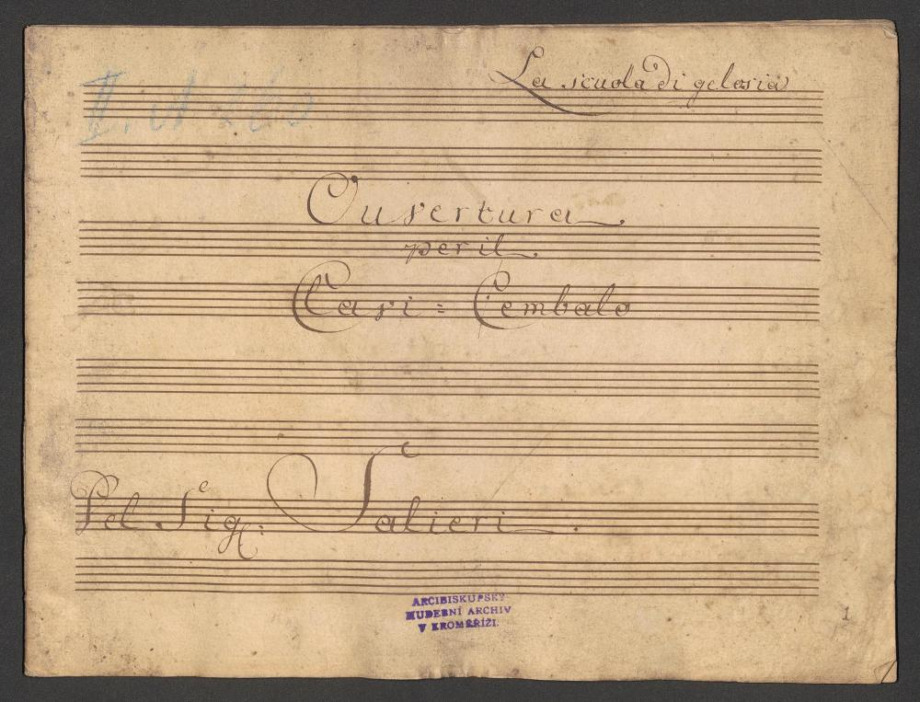 La scuola di gelosia
Ouvertura.
per il.
Clavi = Cembalo
Del Sig: Salieri.
ARCIBISKUPSKÝ
HUDEBNÍ ARCHIV
V KROMĚŘÍŽI.
1